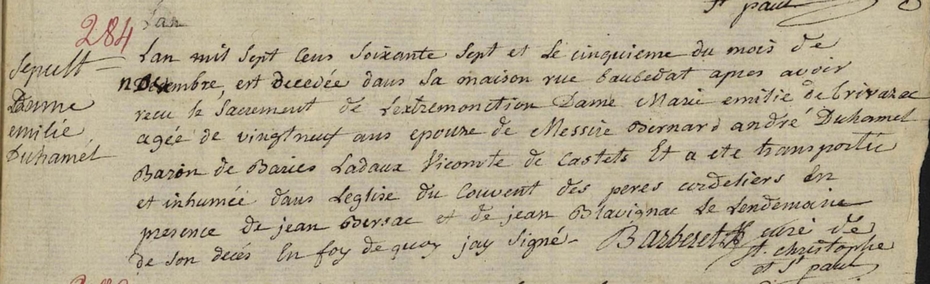 st paul
Lan
284
Sepult
Dame
emilie
Duhamel
Lan mil sept cens soixante sept et le cinquieme du mois de
novembre, est decedée dans sa maison rue baubadat apres avoir
recu le sacrement de Lextremonction Dame Marie emilie de
agée de vingtneuf ans epouze de Messire Bernard andré Duhamel
Baron de Baries Ladaux Vicomte de Castets Et a ete transportée
et inhumée dans Leglise du Couvent des peres cordeliers En
presence de jean Bersac et de jean Blavignac Le Lendemain
de son decés En foy de quoy jay signé - Barberet curé de
st. christophe
et st paul